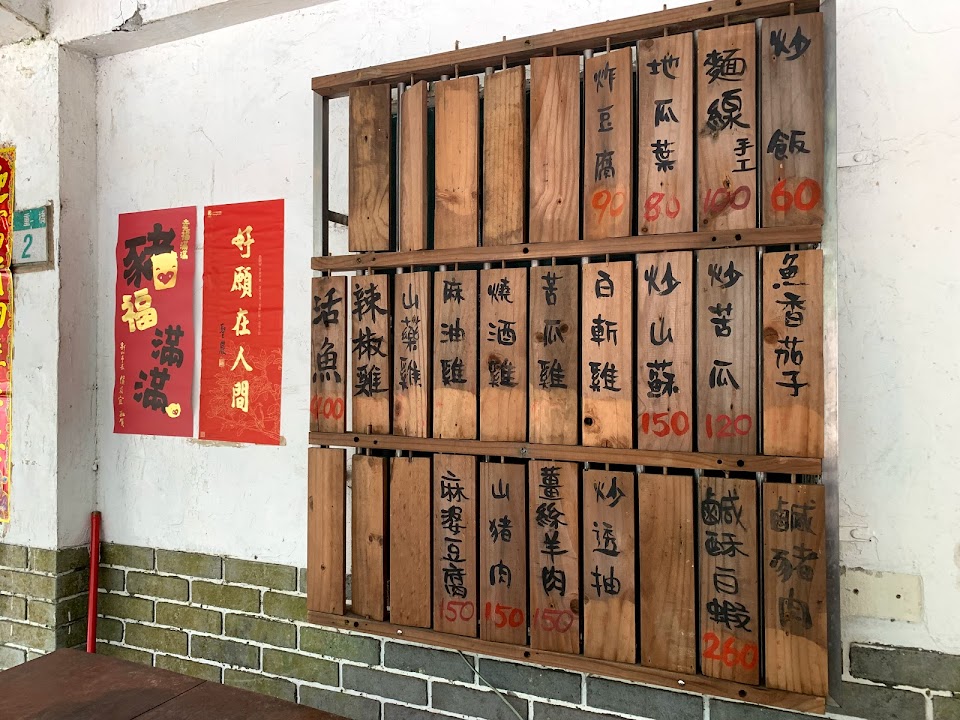 炒飯 60
麵線 手工 100
地瓜葉 80
炸豆腐 90
魚香茄子
炒苦瓜 120
炒山蘇 150
白斬雞
苦瓜雞
燒酒雞
麻油雞
山藥雞
辣椒雞
活魚 400
鹹豬肉
鹹酥白蝦 260
炒透抽
薑絲羊肉 150
山猪肉 150
麻婆豆腐 150
好願在人間
豬福滿滿
2